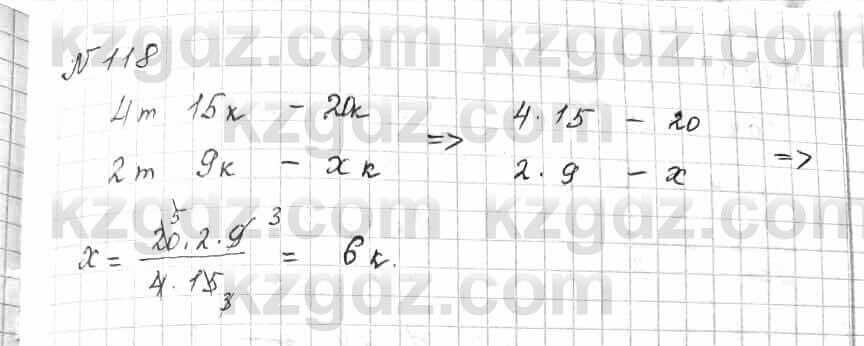 kzgdz.com kzgdz.com
№118
4т 15к - 20к => 4·15 - 20
2т 9к - xк 2·9 - x =>
kzgdz.com kzgdz.com
x = 20·2·9 / 4·15 = 6к.
5 3
3
kzgdz.com kzgdz.com